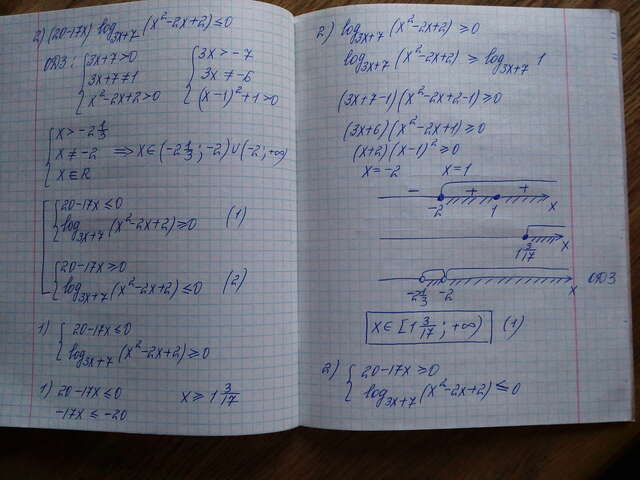 2) (20-17x) log₃ₓ₊₇ (x²-2x+2) ≤ 0
ОДЗ: { 3x+7>0 { 3x > -7
3x+7≠1 3x ≠ -6
x²-2x+2>0 (x-1)²+1>0
{ x > -2 1/3
x ≠ -2 ⇒ x∈(-2 1/3; -2)∪(-2; +∞)
x∈R
[ { 20-17x ≤ 0
log₃ₓ₊₇ (x²-2x+2) ≥ 0 (1)
{ 20-17x ≥ 0
log₃ₓ₊₇ (x²-2x+2) ≤ 0 (2)
1) { 20-17x ≤ 0
log₃ₓ₊₇ (x²-2x+2) ≥ 0
1) 20-17x ≤ 0 x ≥ 1 3/17
-17x ≤ -20
2) log₃ₓ₊₇ (x²-2x+2) ≥ 0
log₃ₓ₊₇ (x²-2x+2) ≥ log₃ₓ₊₇ 1
(3x+7-1)(x²-2x+2-1) ≥ 0
(3x+6)(x²-2x+1) ≥ 0
(x+2)(x-1)² ≥ 0
x = -2 x = 1
- + +
-2 1 x
1 3/17 x
-2 1/3 -2 x ОДЗ
x∈[1 3/17; +∞) (1)
2) { 20-17x ≥ 0
log₃ₓ₊₇ (x²-2x+2) ≤ 0